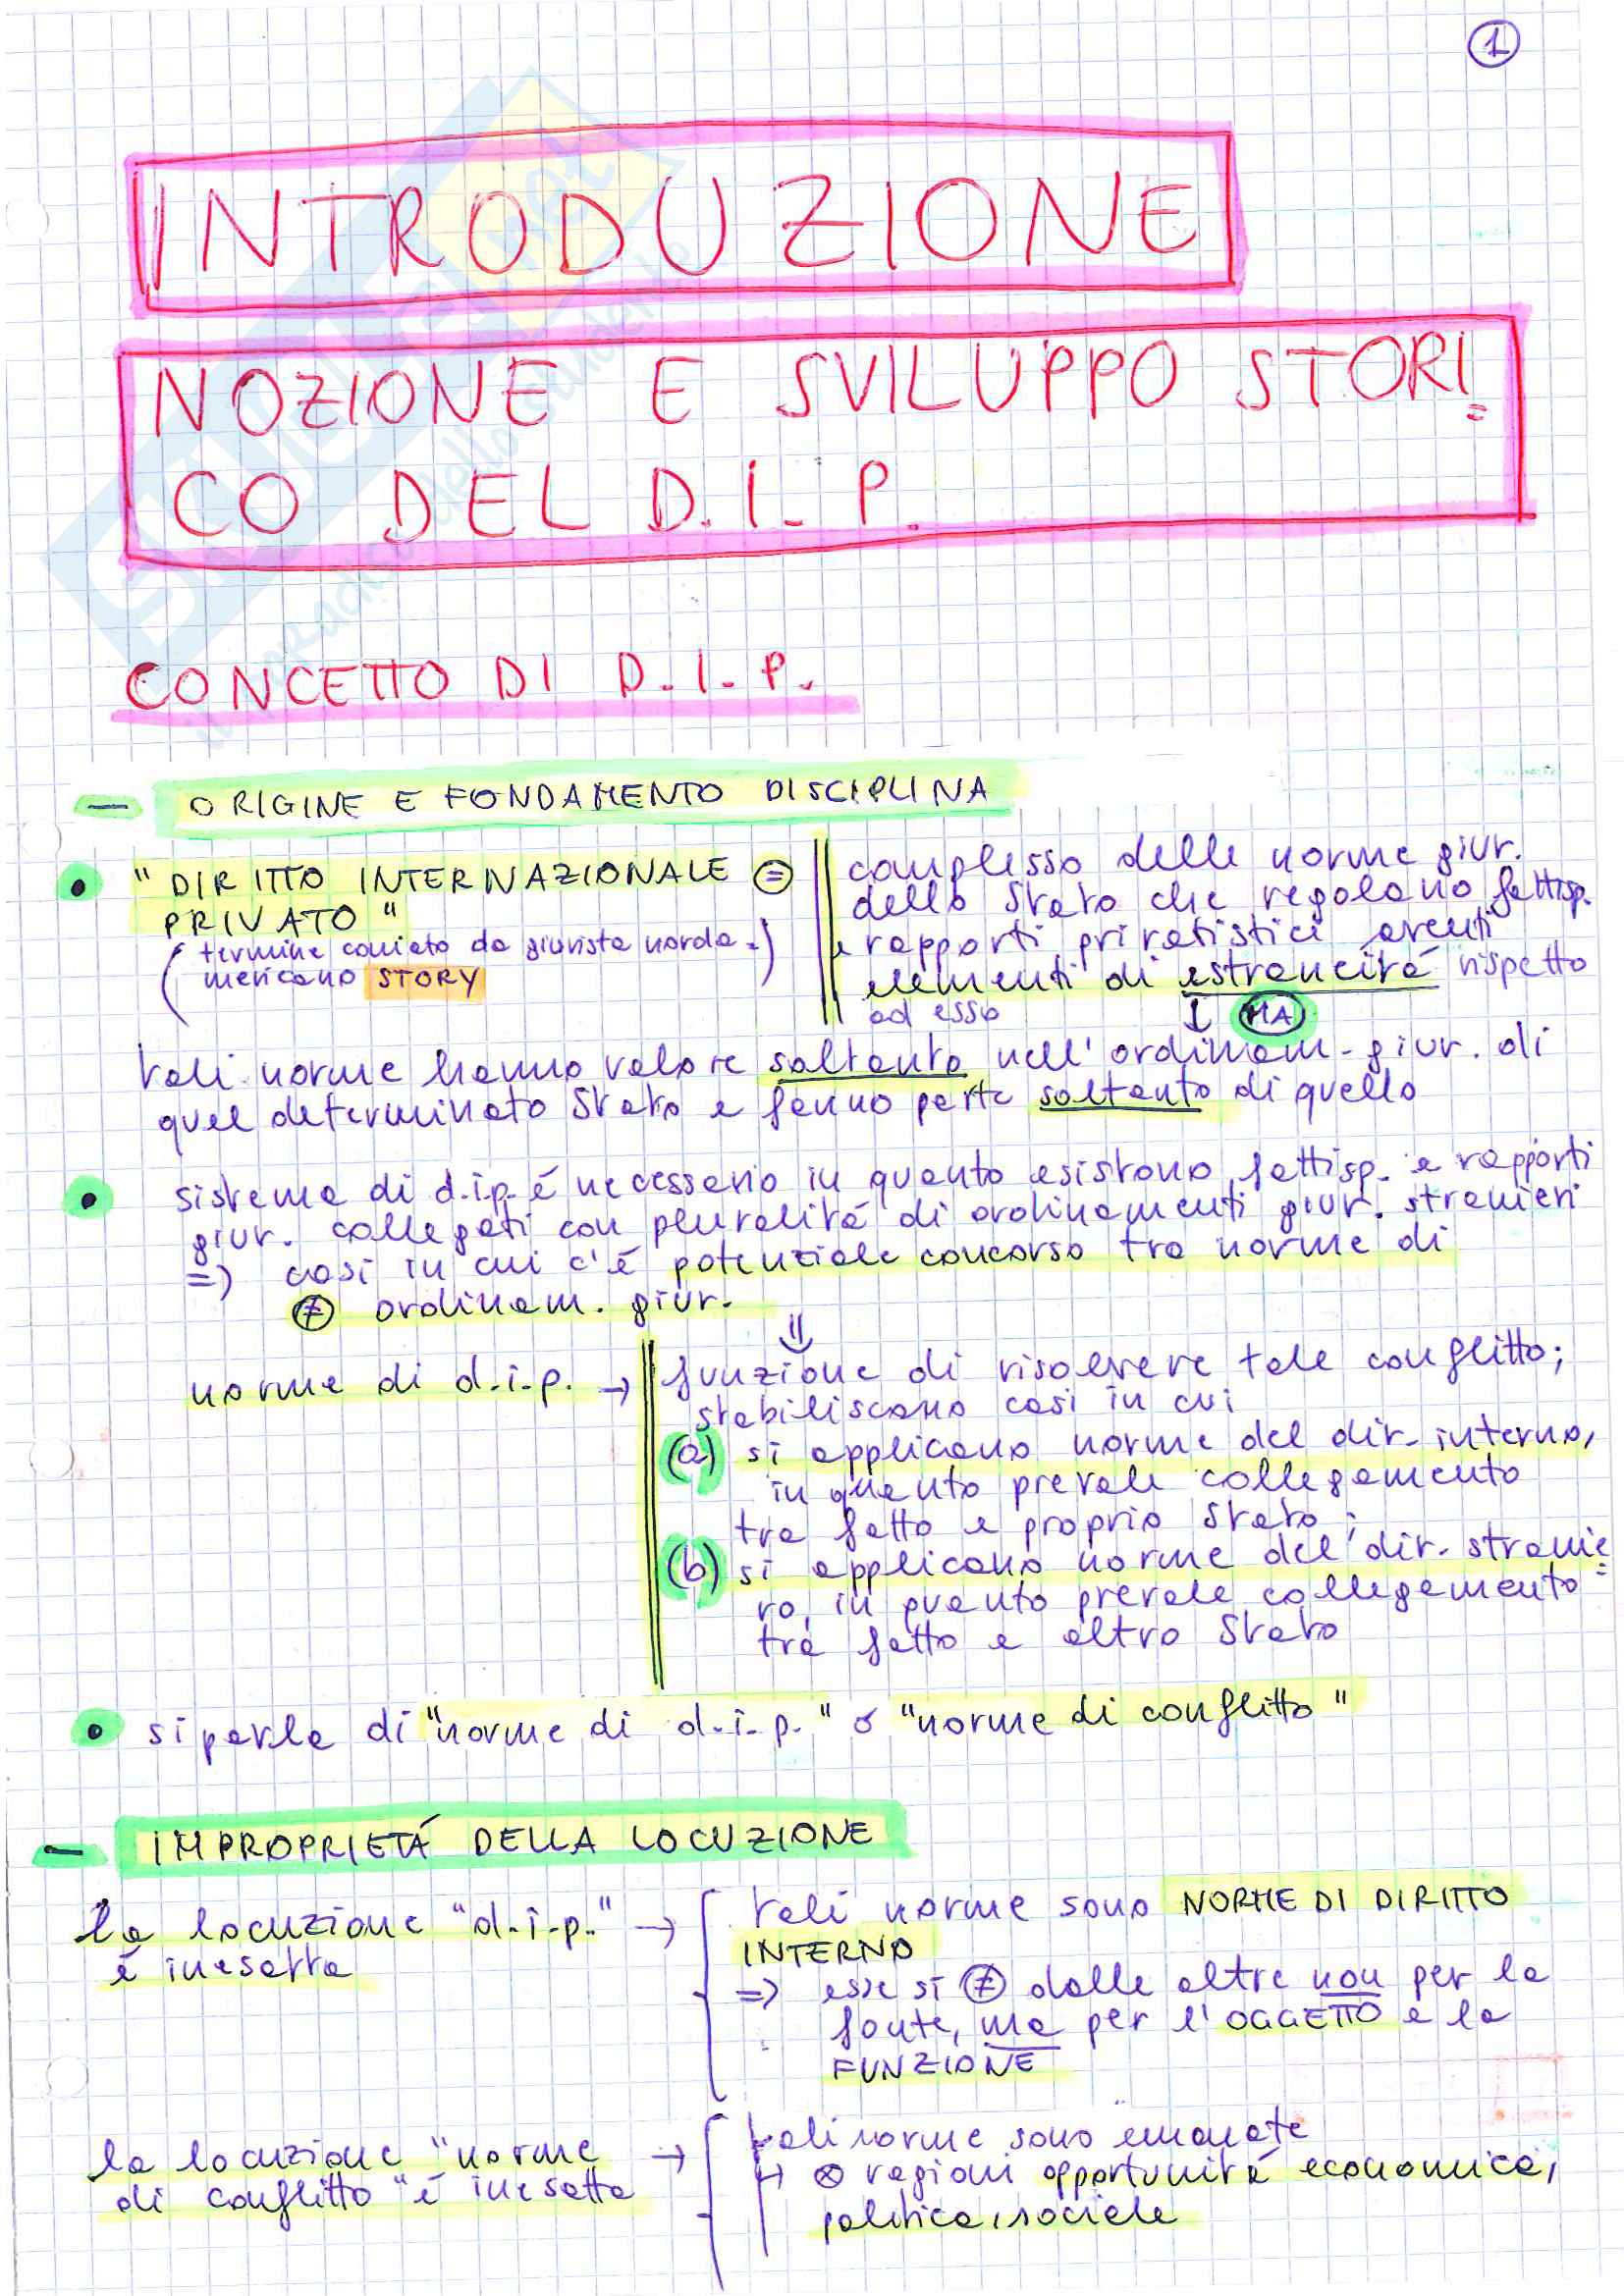 1
INTRODUZIONE
NOZIONE E SVILUPPO STORI=
CO DEL D.I.P.
CONCETTO DI D.I.P.
— ORIGINE E FONDAMENTO DISCIPLINA
• "DIRITTO INTERNAZIONALE =
PRIVATO"
(termine coniato da giurista norda=)
mericano STORY
complesso delle norme giur.
dello Stato che regolano fattisp.
e rapporti privatistici aventi
elementi di estraneità rispetto
ad esso ↓ MA
tali norme hanno valore soltanto nell'ordinam. giur. di
quel determinato Stato e fanno parte soltanto di quello
• sistema di d.i.p. é necessario in quanto esistono fattisp. e rapporti
giur. collegati con pluralitá di ordinamenti giur. stranieri
=> casi in cui c'é potenziale concorso tra norme di
≠ ordinam. giur.
⇓
norme di d.i.p. → funzione di risolvere tale conflitto;
stabiliscono casi in cui
(a) si applicano norme del dir. interno,
in quanto prevale collegamento
tra fatto e proprio Stato;
(b) si applicano norme del dir. stranie=
ro, in quanto prevale collegamento
tra fatto e altro Stato
• si parla di "norme di d.i.p." o "norme di conflitto"
— IMPROPRIETÁ DELLA LOCUZIONE
la locuzione "d.i.p." →
é inesatta
tali norme sono NORME DI DIRITTO
INTERNO
=> esse si ≠ dalle altre non per la
fonte, ma per l'OGGETTO e la
FUNZIONE
la locuzione "norme →
di conflitto" é inesatta
tali norme sono emanate
↦ ⊗ ragioni opportunitá economica,
politica, sociale